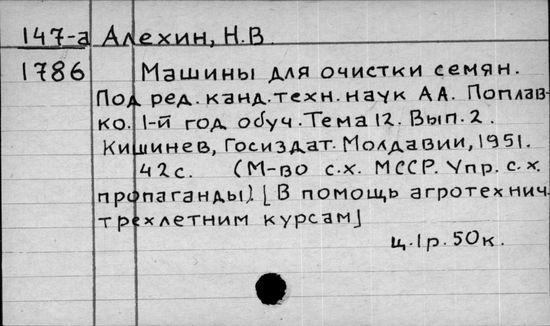 147-а Алехин, Н.В.
1786 Машины для очистки семян.
Под ред. канд. техн. наук А.А. Поплав-
ко. 1-й год обуч. Тема 12. Вып. 2.
Кишинев, Госиздат. Молдавии, 1951.
42 с. (М-во с.х. МССР. Упр. с.х.
пропаганды) [В помощь агротехнич.
трехлетним курсам]
ц. 1 р. 50 к.